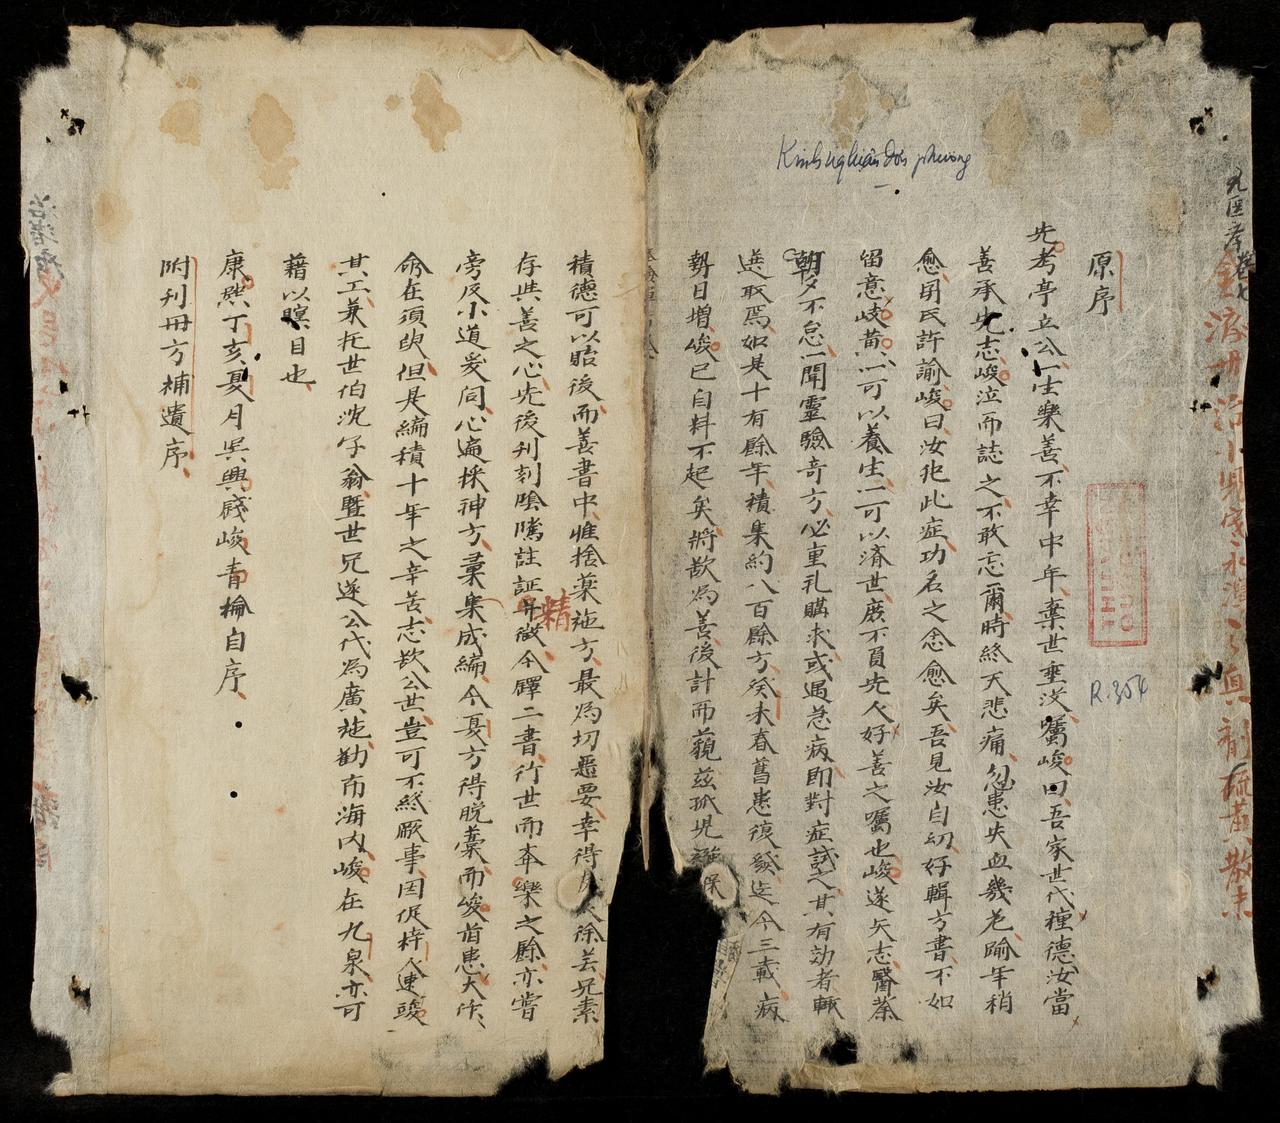 Kinh nghiệm đơn phương
原序
先考亭立公一生樂善不幸中年棄世垂沒囑峻曰吾家世代種德汝當
善承先志峻泣而誌之不敢忘爾時終天悲痛忽患失血幾危踰年稍
愈朋氏許諭峻曰汝犯此症功名之念愈矣吾見汝自幼好輯方書不如
留意岐黃一可以養生二可以濟世庶不負先人好善之囑也峻遂矢志醫葉
朝夕不怠一聞靈驗奇方必重礼購求或遇急病即對症試之其有効者輒
選取焉如是十有餘年積集約八百餘方癸未春舊患復發迄今三載病
勢日增峻已自料不起矣將欲為善後計而藐茲孤兒
R.354
積德可以貽後而善書中惟捨藥施方最為切要幸得徐芸兄素
存與善之心先後刊刻陰隲註証精徵今釋二書行世而本樂之餘亦嘗
旁及小道爰同心遍採神方彙集成編今夏方得脫稾而峻首患大作
命在須臾但是編積十年之辛苦志欲公世豈可不終厥事因促梓人速竣
其工兼托世伯沈字翁暨世兄遂公代為廣施勸南海內峻在九泉亦可
藉以瞑目也
康熙丁亥夏月吳興戚峻青楡自序
附刊毌方補遺序